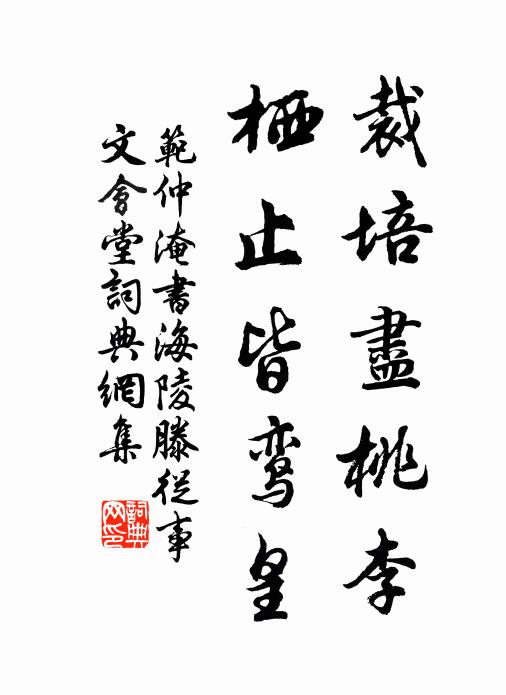 裁培盡桃李
栖止皆鸾皇
範仲淹書海陵滕從事
文會堂詞典網集
詞典网印